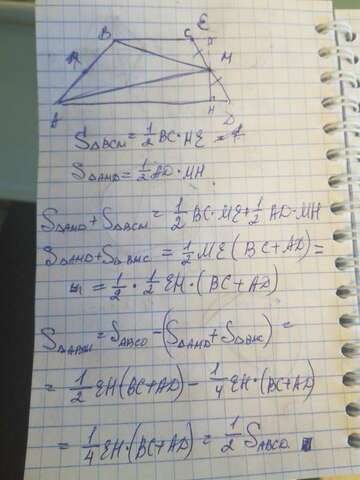 B C E
M
A H D
S△BCM = 1/2 BC·ME
S△AMD = 1/2 AD·MH
S△AMD + S△BCM = 1/2 BC·ME + 1/2 AD·MH
S△AMD + S△BMC = 1/2 ME (BC + AD) =
= 1/2 · 1/2 EH·(BC + AD)
S△ABM = SABCD - (S△AMD + S△BMC) =
= 1/2 EH (BC + AD) - 1/4 EH·(BC + AD)
= 1/4 EH·(BC + AD) = 1/2 SABCD.